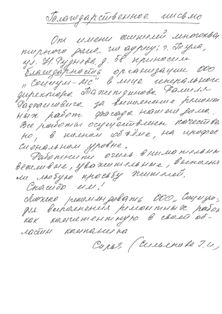 Благодарственное письмо
От имени жителей многоквар
тирного дома по адресу: г. Тула,
ул. Н. Руднева, д. 58 приносим
благодарность организации ООО
„Социум-МС" в лице генерального
директора
за выполнение ремонт
ных работ фасада нашего дома.
Все работы осуществлены качествен
но, в полном объёме, на профес
сиональном уровне.
Работники очень внимательны
вежливые, уважительные, выполня
ли любую просьбу жителей.
Спасибо им!
рекомендовать ООО „Социум
для выполнения ремонтных работ
как компетентную в своей об
ласти компанию